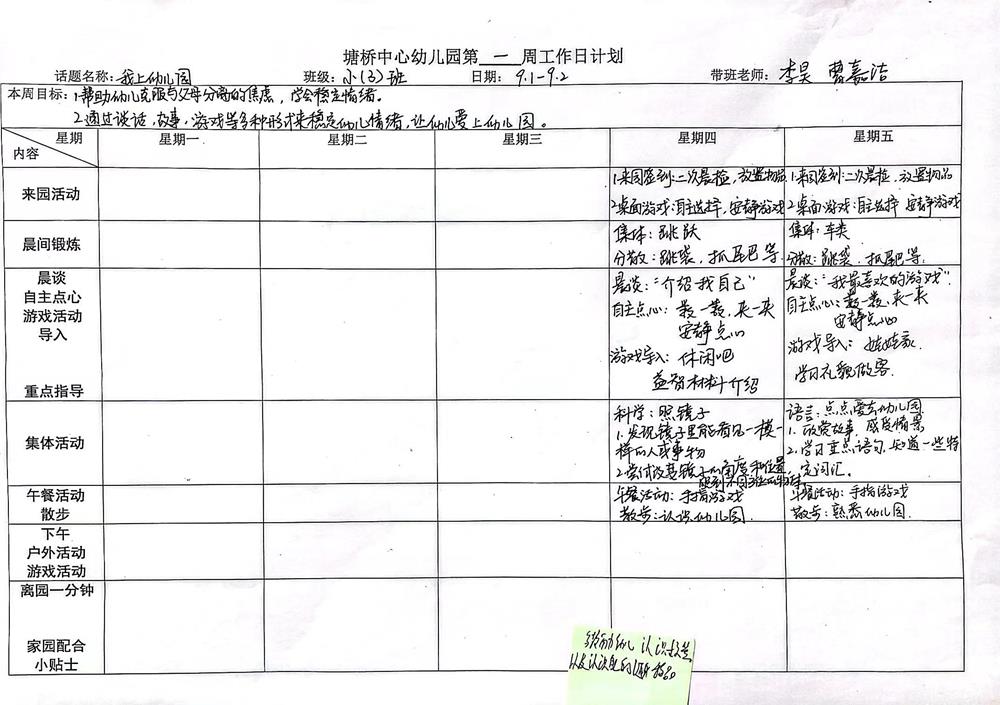 塘桥中心幼儿园第 一 周工作日计划
话题名称：我上幼儿园 班级：小（3）班 日期：9.1-9.2 带班老师：李昊 曹嘉洁
本周目标：1.帮助幼儿克服与父母分离的焦虑，学会稳定情绪。
2.通过谈话、故事、游戏等多种形式来稳定幼儿情绪，让幼儿爱上幼儿园。
星期 内容 星期一 星期二 星期三 星期四 星期五
来园活动
1.来园签到：二次晨检，放置物品
2.桌面游戏：自主选择，安静游戏
1.来园签到：二次晨检，放置物品
2.桌面游戏：自主选择 安静游戏
晨间锻炼
集体：跳跃
分散：跳袋、抓尾巴等
集体：车类
分散：跳袋、抓尾巴等。
晨谈
自主点心
游戏活动
导入
重点指导
晨谈：“介绍我自己”
自主点心：数一数，夹一夹
安静点心
游戏导入：休闲吧
益智材料介绍
晨谈：“我最喜欢的游戏”
自主点心：数一数，夹一夹
安静点心
游戏导入：娃娃家
学习礼貌做客.
集体活动
科学：照镜子
1.发现镜子里能看见一模一
样的人或事物
2.尝试改变镜子的角度和位置，
照到不同的物体.
语言：点点爱去幼儿园
1.欣赏故事，感受情景
2.学习重点语句，知道一些特
定词汇.
午餐活动
散步
午餐活动：手指游戏
散步：认识幼儿园.
午餐活动：手指游戏
散步：熟悉幼儿园.
下午
户外活动
游戏活动
离园一分钟
家园配合
小贴士
幼儿 认识
以及认识自己的 物品